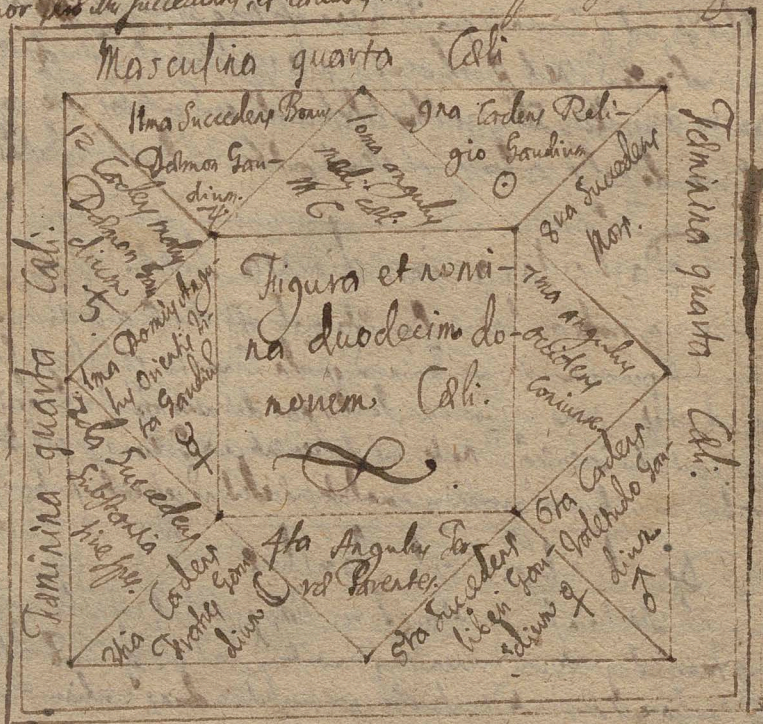 Masculina quarta Cæli
Fæminina quarta Cæli.
Fæminina quarta Cæli.
11ma Succedens Bonus
Dæmon Gau-
dium. ♃
10ma angulus
medij cæli
M C.
9na Cadens Reli-
gio Gaudium
☉
8va Succedens
Mors.
7ma angulus
occidens
Coniunx
6ta Cadens
Valetudo Gau-
dium
♂
5ta Succedens
liberi Gau-
dium ♀
4ta Angulus Ter-
ræ Parentes.
3tia Cadens
Fratres Gau-
dium ☾
2da Succedens
Substantia
sive spes.
1ma Domus Angu-
lus Orientis Vi-
ta Gaudium
☿
12 Cadens malus
Dæmon Gau-
dium
♄
Figura et nomi-
na duodecim do-
morum Cæli.